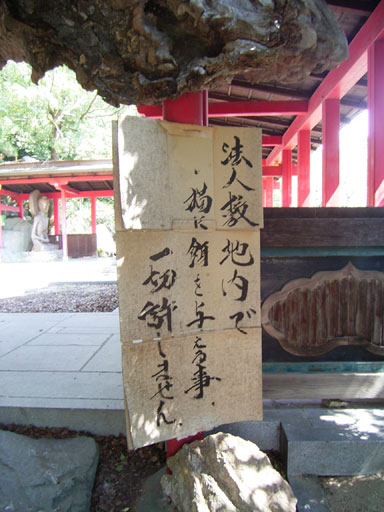 法人敷地内で
猫に餌を与える事
一切許しません。